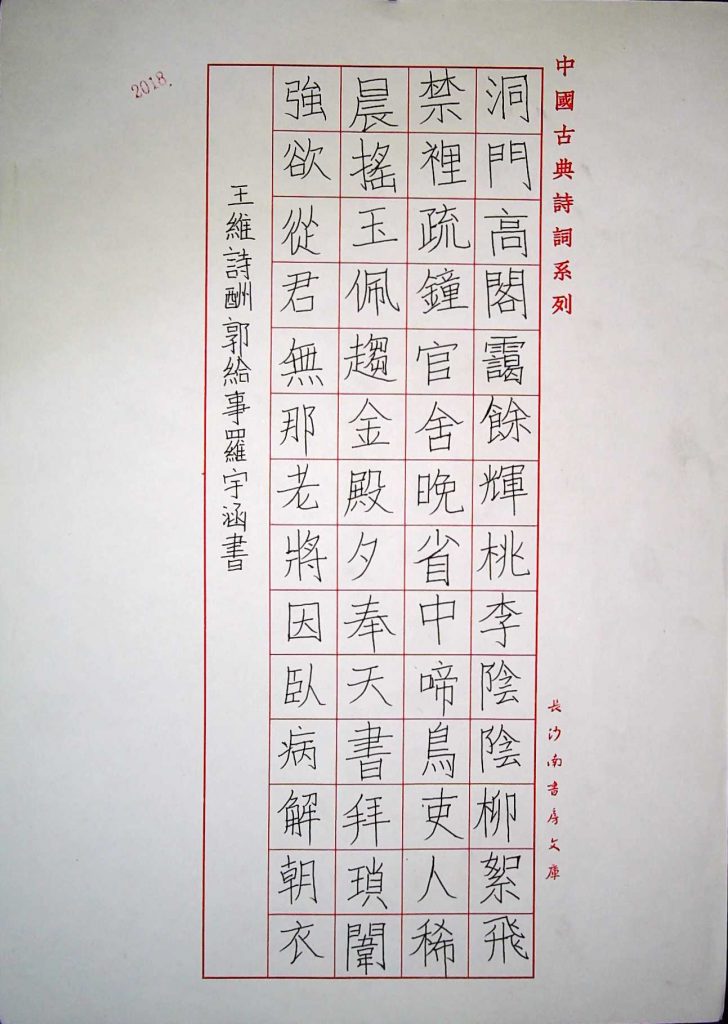 中國古典詩詞系列
長沙南書房文庫
洞門高閣靄餘輝桃李陰陰柳絮飛
禁裡疏鐘官舍晚省中啼鳥吏人稀
晨搖玉佩趨金殿夕奉天書拜瑣闈
強欲從君無那老將因臥病解朝衣
王維詩酬郭給事羅宇涵書
2018.